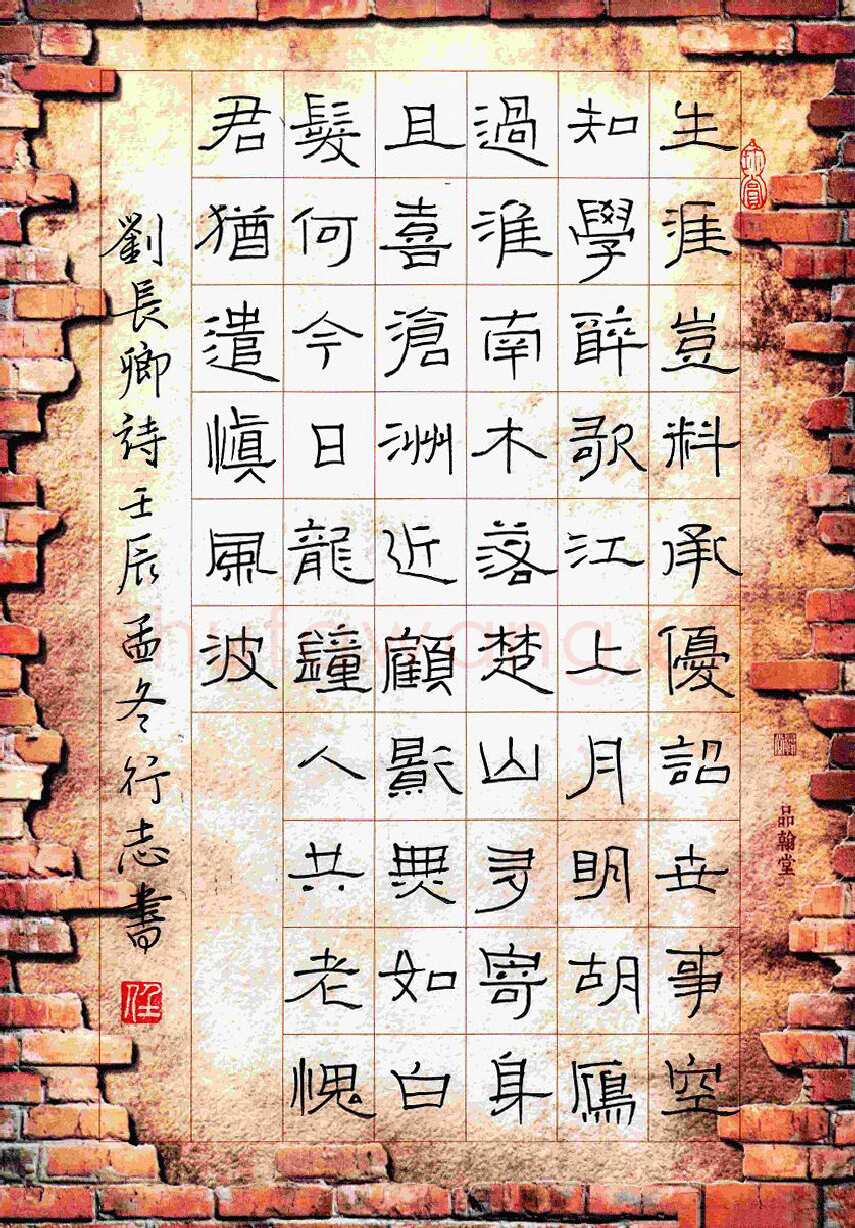 生涯豈料承優詔世事空
知學醉歌江上月明胡鴈
過淮南木落楚山多寄身
且喜滄洲近顧影無如白
髮何今日龍鐘人共老愧
君猶遣慎風波
劉長卿詩壬辰孟冬行志書
任
品翰堂